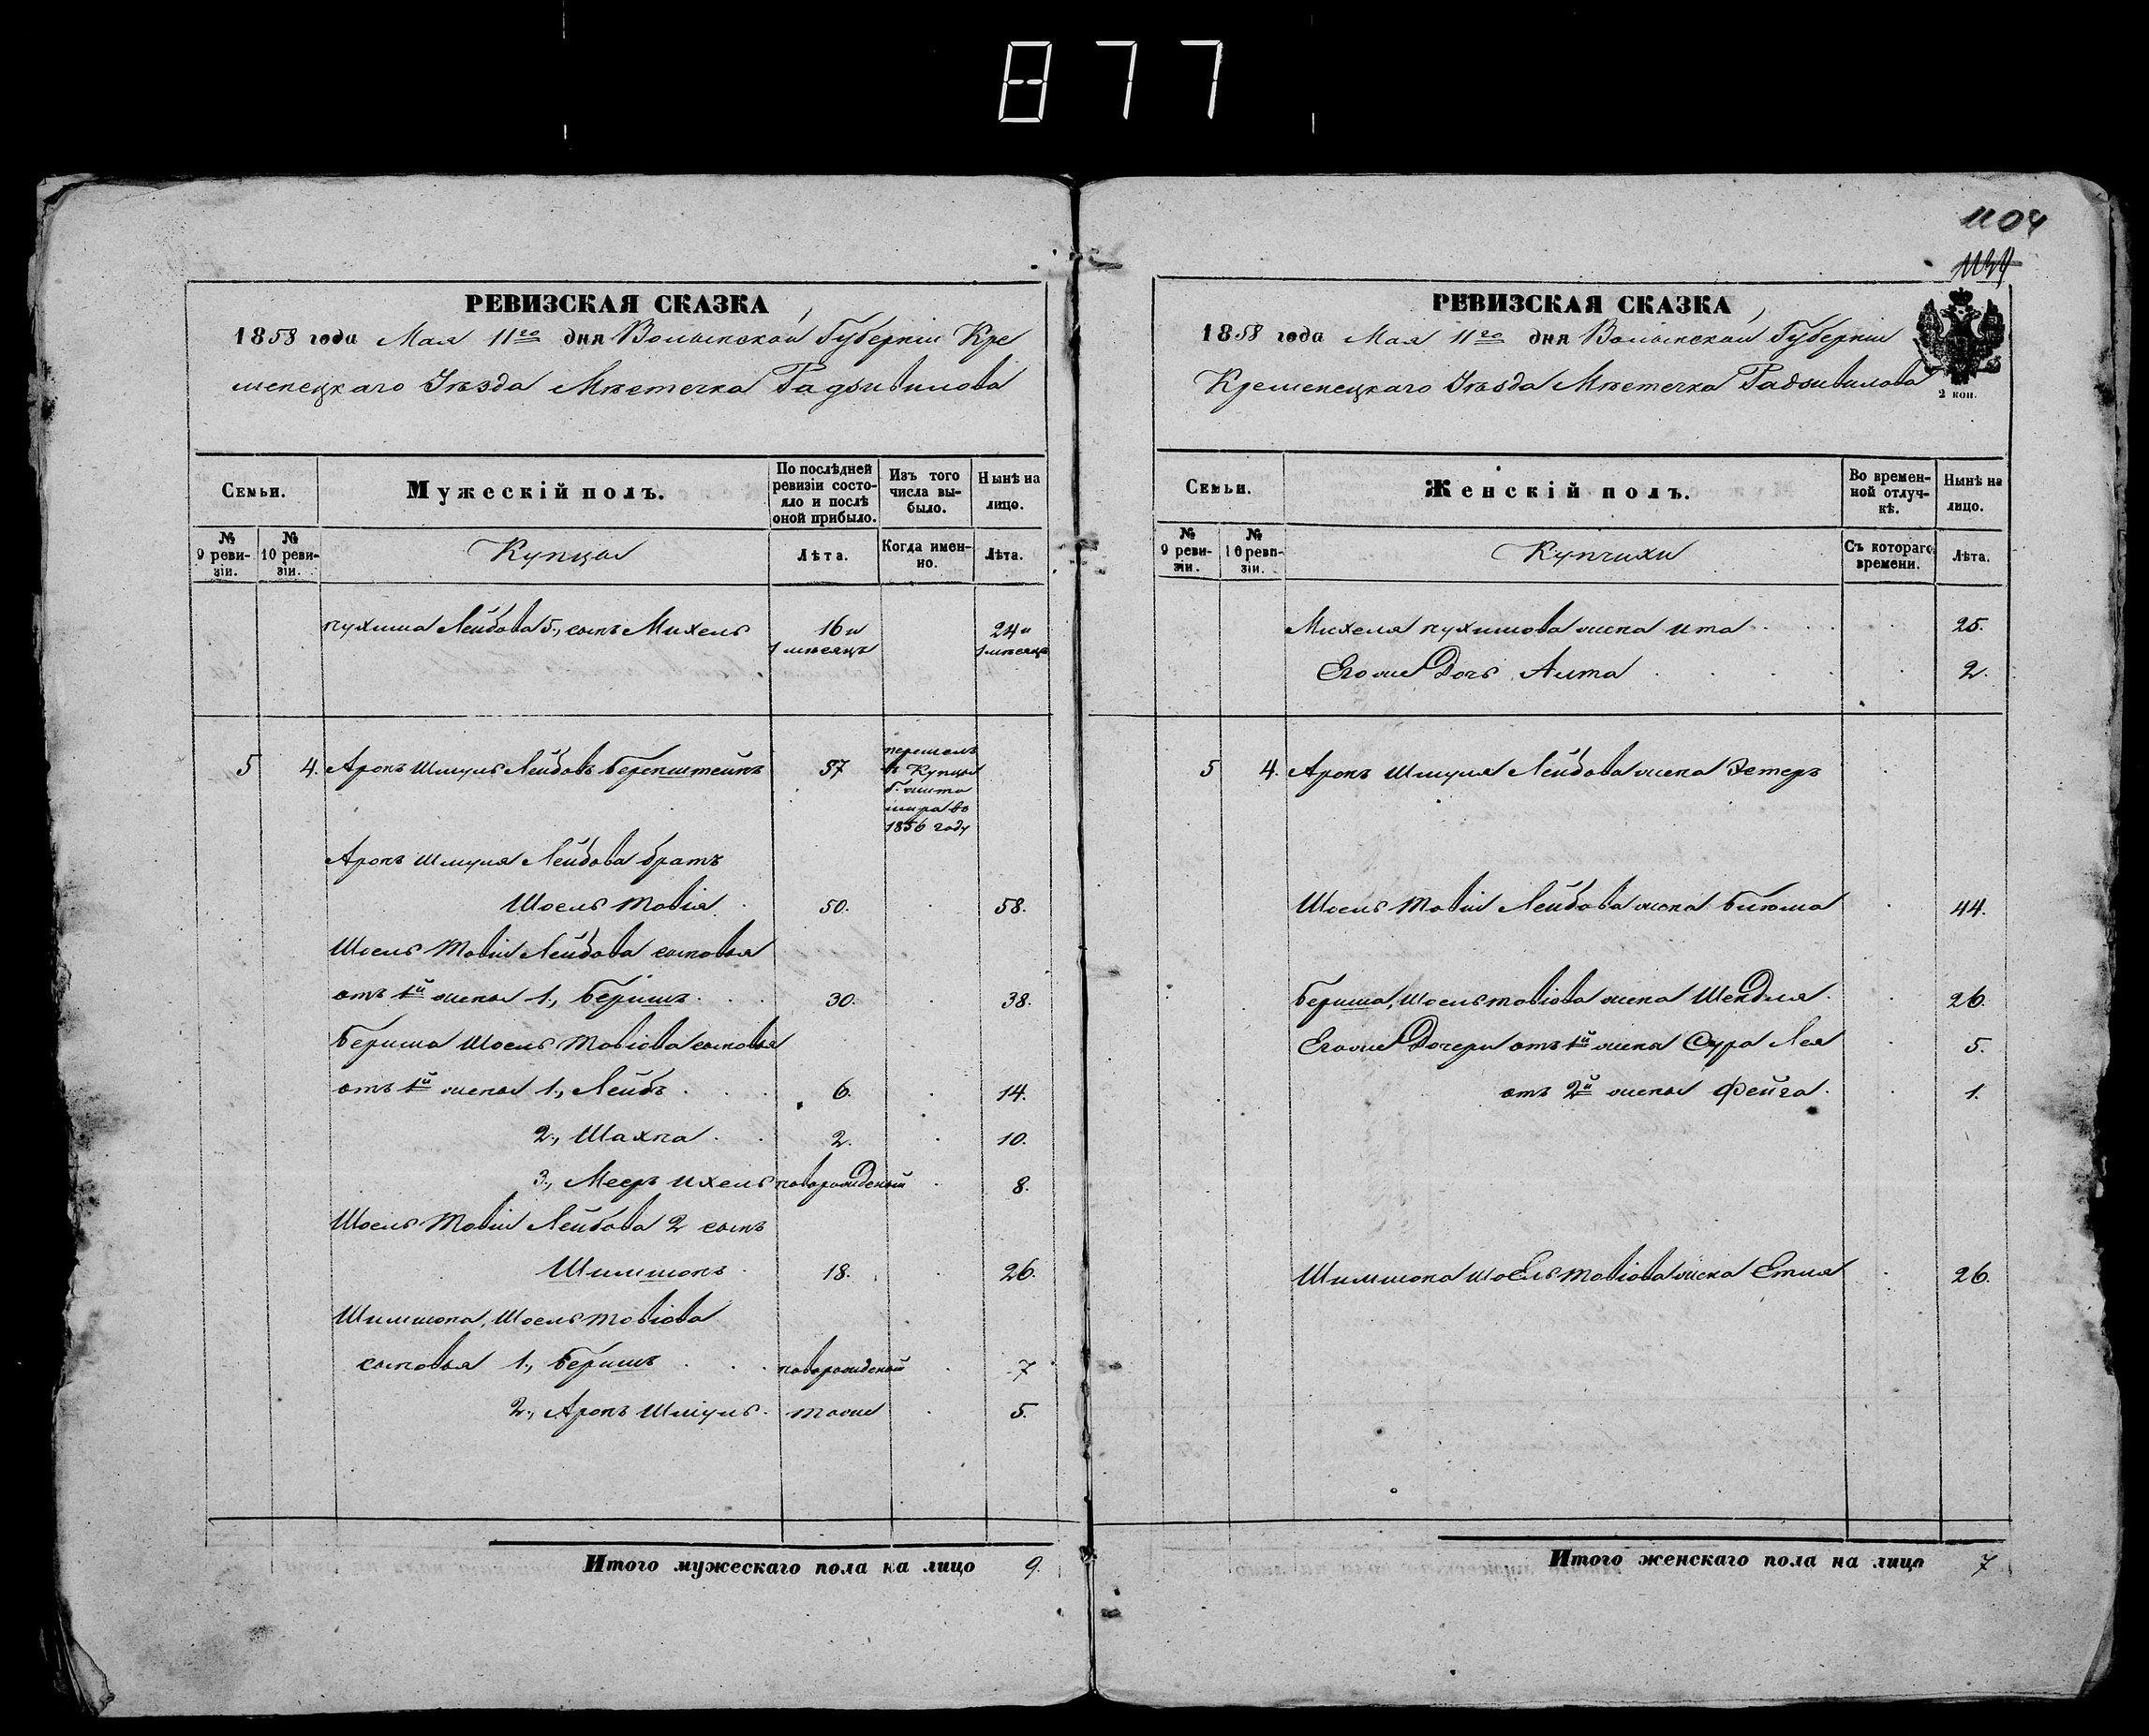 877
РЕВИЗСКАЯ СКАЗКА
1858 года Мая 11го дня Волынской Губерніи Кре
менецкаго Уѣзда Мѣстечка Радзивилова
Семьи.
Мужескій полъ.
По послѣдней ревизіи состояло и послѣ оной прибыло.
Изъ того числа выбыло.
Нынѣ на лицо.
№ 9 ревизіи.
№ 10 ревизіи.
Купцы
Лѣта.
Когда именно.
Лѣта.
Нухима Лейбова 5., сынъ Михель 16 и 24 и
1 мѣсяцъ 1 мѣсяцъ
5 4. Аронъ Шмуль Лейбовъ Беренштейнъ 57 перешелъ
в Купцы
г. Жито
мира во
1856 году
Аронъ Шмуля Лейбова братъ
Шоель Товія 50. 58.
Шоель Товіи Лейбова сыновья
отъ 1й жены 1., Беришъ 30. 38.
Бериша Шоель Товіова сыновья
отъ 1й жены 1., Лейбъ 6. 14.
2., Шахна 2. 10.
3., Мееръ Ихель новорожденый 8.
Шоель Товіи Лейбова 2 сынъ
Шимшонъ 18. 26.
Шимшона Шоель Товіова
сыновья 1., Беришъ новорожденый 7
2., Аронъ Шмуль тоже 5.
Итого мужескаго пола на лицо 9.
1104
РЕВИЗСКАЯ СКАЗКА
1858 года Мая 11го дня Волынской Губерніи
Кременецкаго Уѣзда Мѣстечка Радзивилова
2 коп.
Семьи.
Женскій полъ.
Во временной отлучкѣ.
Нынѣ на лицо.
№ 9 ревизіи.
№ 10 ревизіи.
Купчихи
Съ котораго времени.
Лѣта.
Михеля Нухимова жена Ита 25.
Егоже Дочь Алта 2.
5 4. Аронъ Шмуля Лейбова жена Эстеръ
Шоель Товіи Лейбова жена Блюма 44.
Бериша Шоель Товіова жена Шендля 26.
Егоже Дочери отъ 1й жены Сура Лея 5.
отъ 2й жены Фейга 1.
Шимшона Шоель Товіова жена Етля 26.
Итого женскаго пола на лицо 7